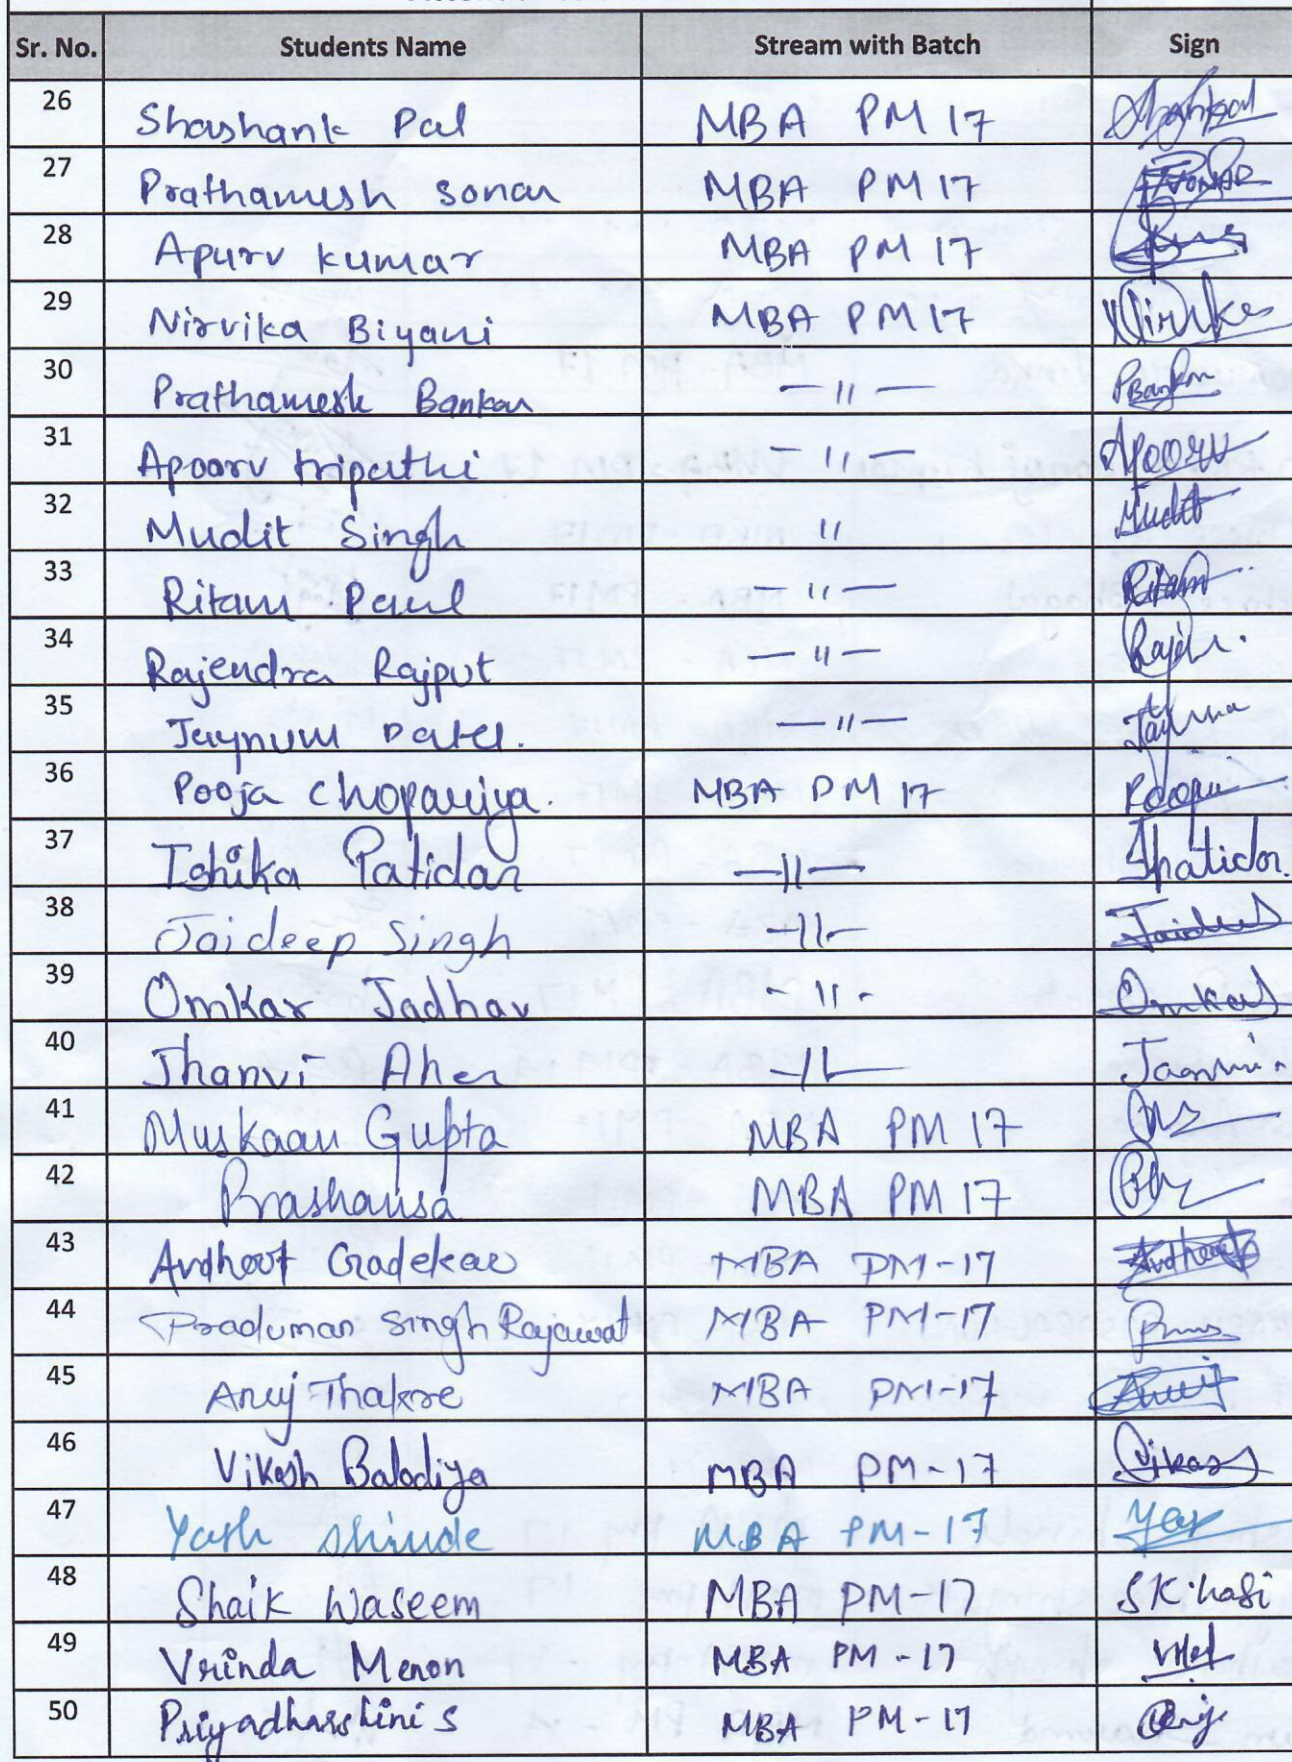 Sr. No. Students Name Stream with Batch Sign
26 Shashank Pal MBA PM 17
27 Prathamesh Sonar MBA PM 17
28 Apurv Kumar MBA PM 17
29 Nirvika Biyani MBA PM 17
30 Prathamesh Bankar — 〃 — PBankar
31 Apoorv tripathi — 〃 — Apoorv
32 Mudit Singh 〃 Mudit
33 Ritam Paul — 〃 — Ritam
34 Rajendra Rajput — 〃 —
35 Jaynum Patel. — 〃 —
36 Pooja Chopariya. MBA PM 17 Pooja
37 Ishika Patidar — 〃 — Ipatidar.
38 Jaideep Singh — 〃 — Jaideep
39 Omkar Jadhav - 〃 - Omkar
40 Jhanvi Aher — 〃 —
41 Muskaan Gupta MBA PM 17
42 Prashansa MBA PM 17
43 Avdhoot Gadekar MBA PM-17 Avdhoot
44 Praduman Singh Rajawat MBA PM-17
45 Anuj Thakre MBA PM-17 Anuj
46 Vikash Balodiya MBA PM-17 Vikas
47 Yash Shinde MBA PM-17
48 Shaik Waseem MBA PM-17
49 Vrinda Menon MBA PM-17
50 Priyadharshini S MBA PM-17